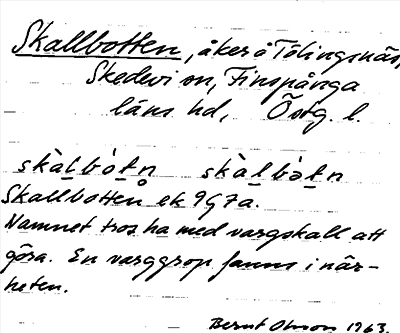 Skallbotten, åker å Tolingsnäs,
Skedevi sn, Finspånga
läns hd, Östg. l.
skàl̲bòt̲n̥ skàl̲bòt̲n
Skallbotten ek 9G7a.
Namnet tros ha med vargskall att
göra. En varggrop fanns i när-
heten.
Bernt Olsson 1963.